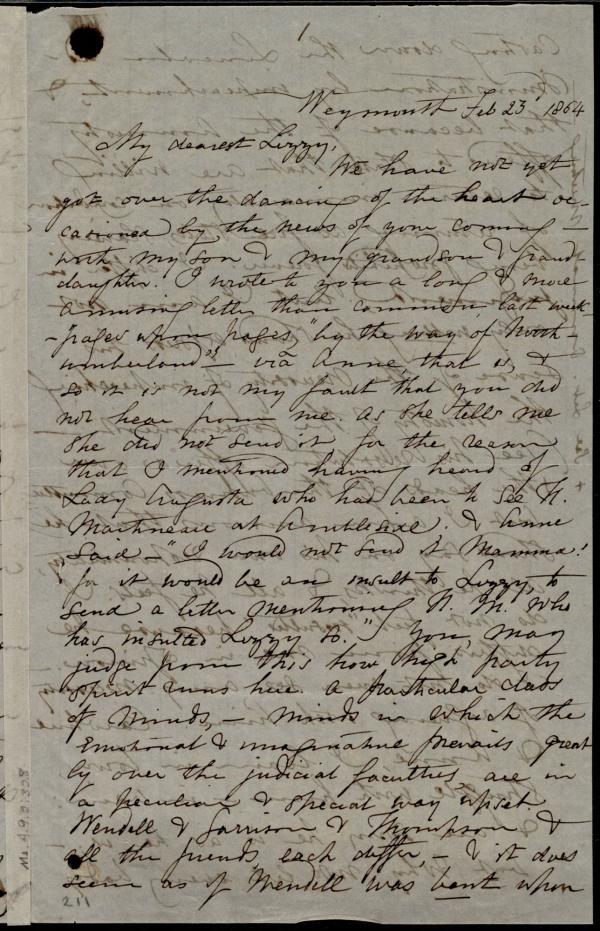 1
Weymouth Feb 23 1864
My dearest Lizzy,
We have not yet
got over the dancing of the heart oc-
casioned by the news of your coming —
with my son & my grandson & grand-
daughter. I wrote to you a long & more
amusing letter than common, last week
- pages upon pages, "by the way of North-
umberland" — via Anne, that is, &
so it is not my fault that you did
not hear from me. As she tells me
she did not send it for the reason
that I mentioned having heard of
Lady Augusta who had been to see H.
Martineau at Ambleside. & Anne
said — "I would not send it Mamma!
for it would be an insult to Lizzy, to
send a letter mentioning H. M. who
has insulted Lizzy so." You may
judge from this how high party
spirit runs here. A particular class
of minds, — minds in which the
Emotional & imaginative prevails great-
ly over the judicial faculties, are in
a peculiar & special way upset.
Wendell & Garrison & Thompson &
all the friends each differ, — & it does
seem as if Wendell was bent upon
211
Ms.A.9.2.